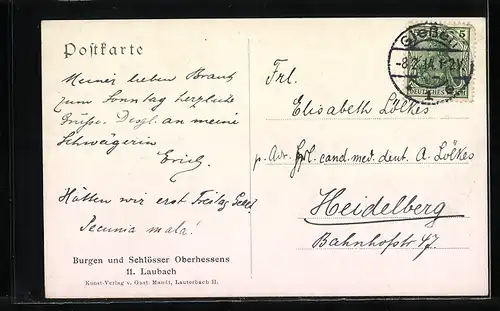 Postkarte
Meiner lieben Braut
zum Sonntag herzliche
Grüsse. Desgl. an meine
Schwägerin
Erich
Hätten wir erst Freitag
Pecunia mala!
Burgen und Schlösser Oberhessens
11. Laubach
Kunst-Verlag v. Gust. Mandt, Lauterbach H.
5
DEUTSCHES
Frl.
Elisabeth Lölkes
p. Adr. cand. med. dent. A. Lölkes
Heidelberg
Bahnhofstr 47.